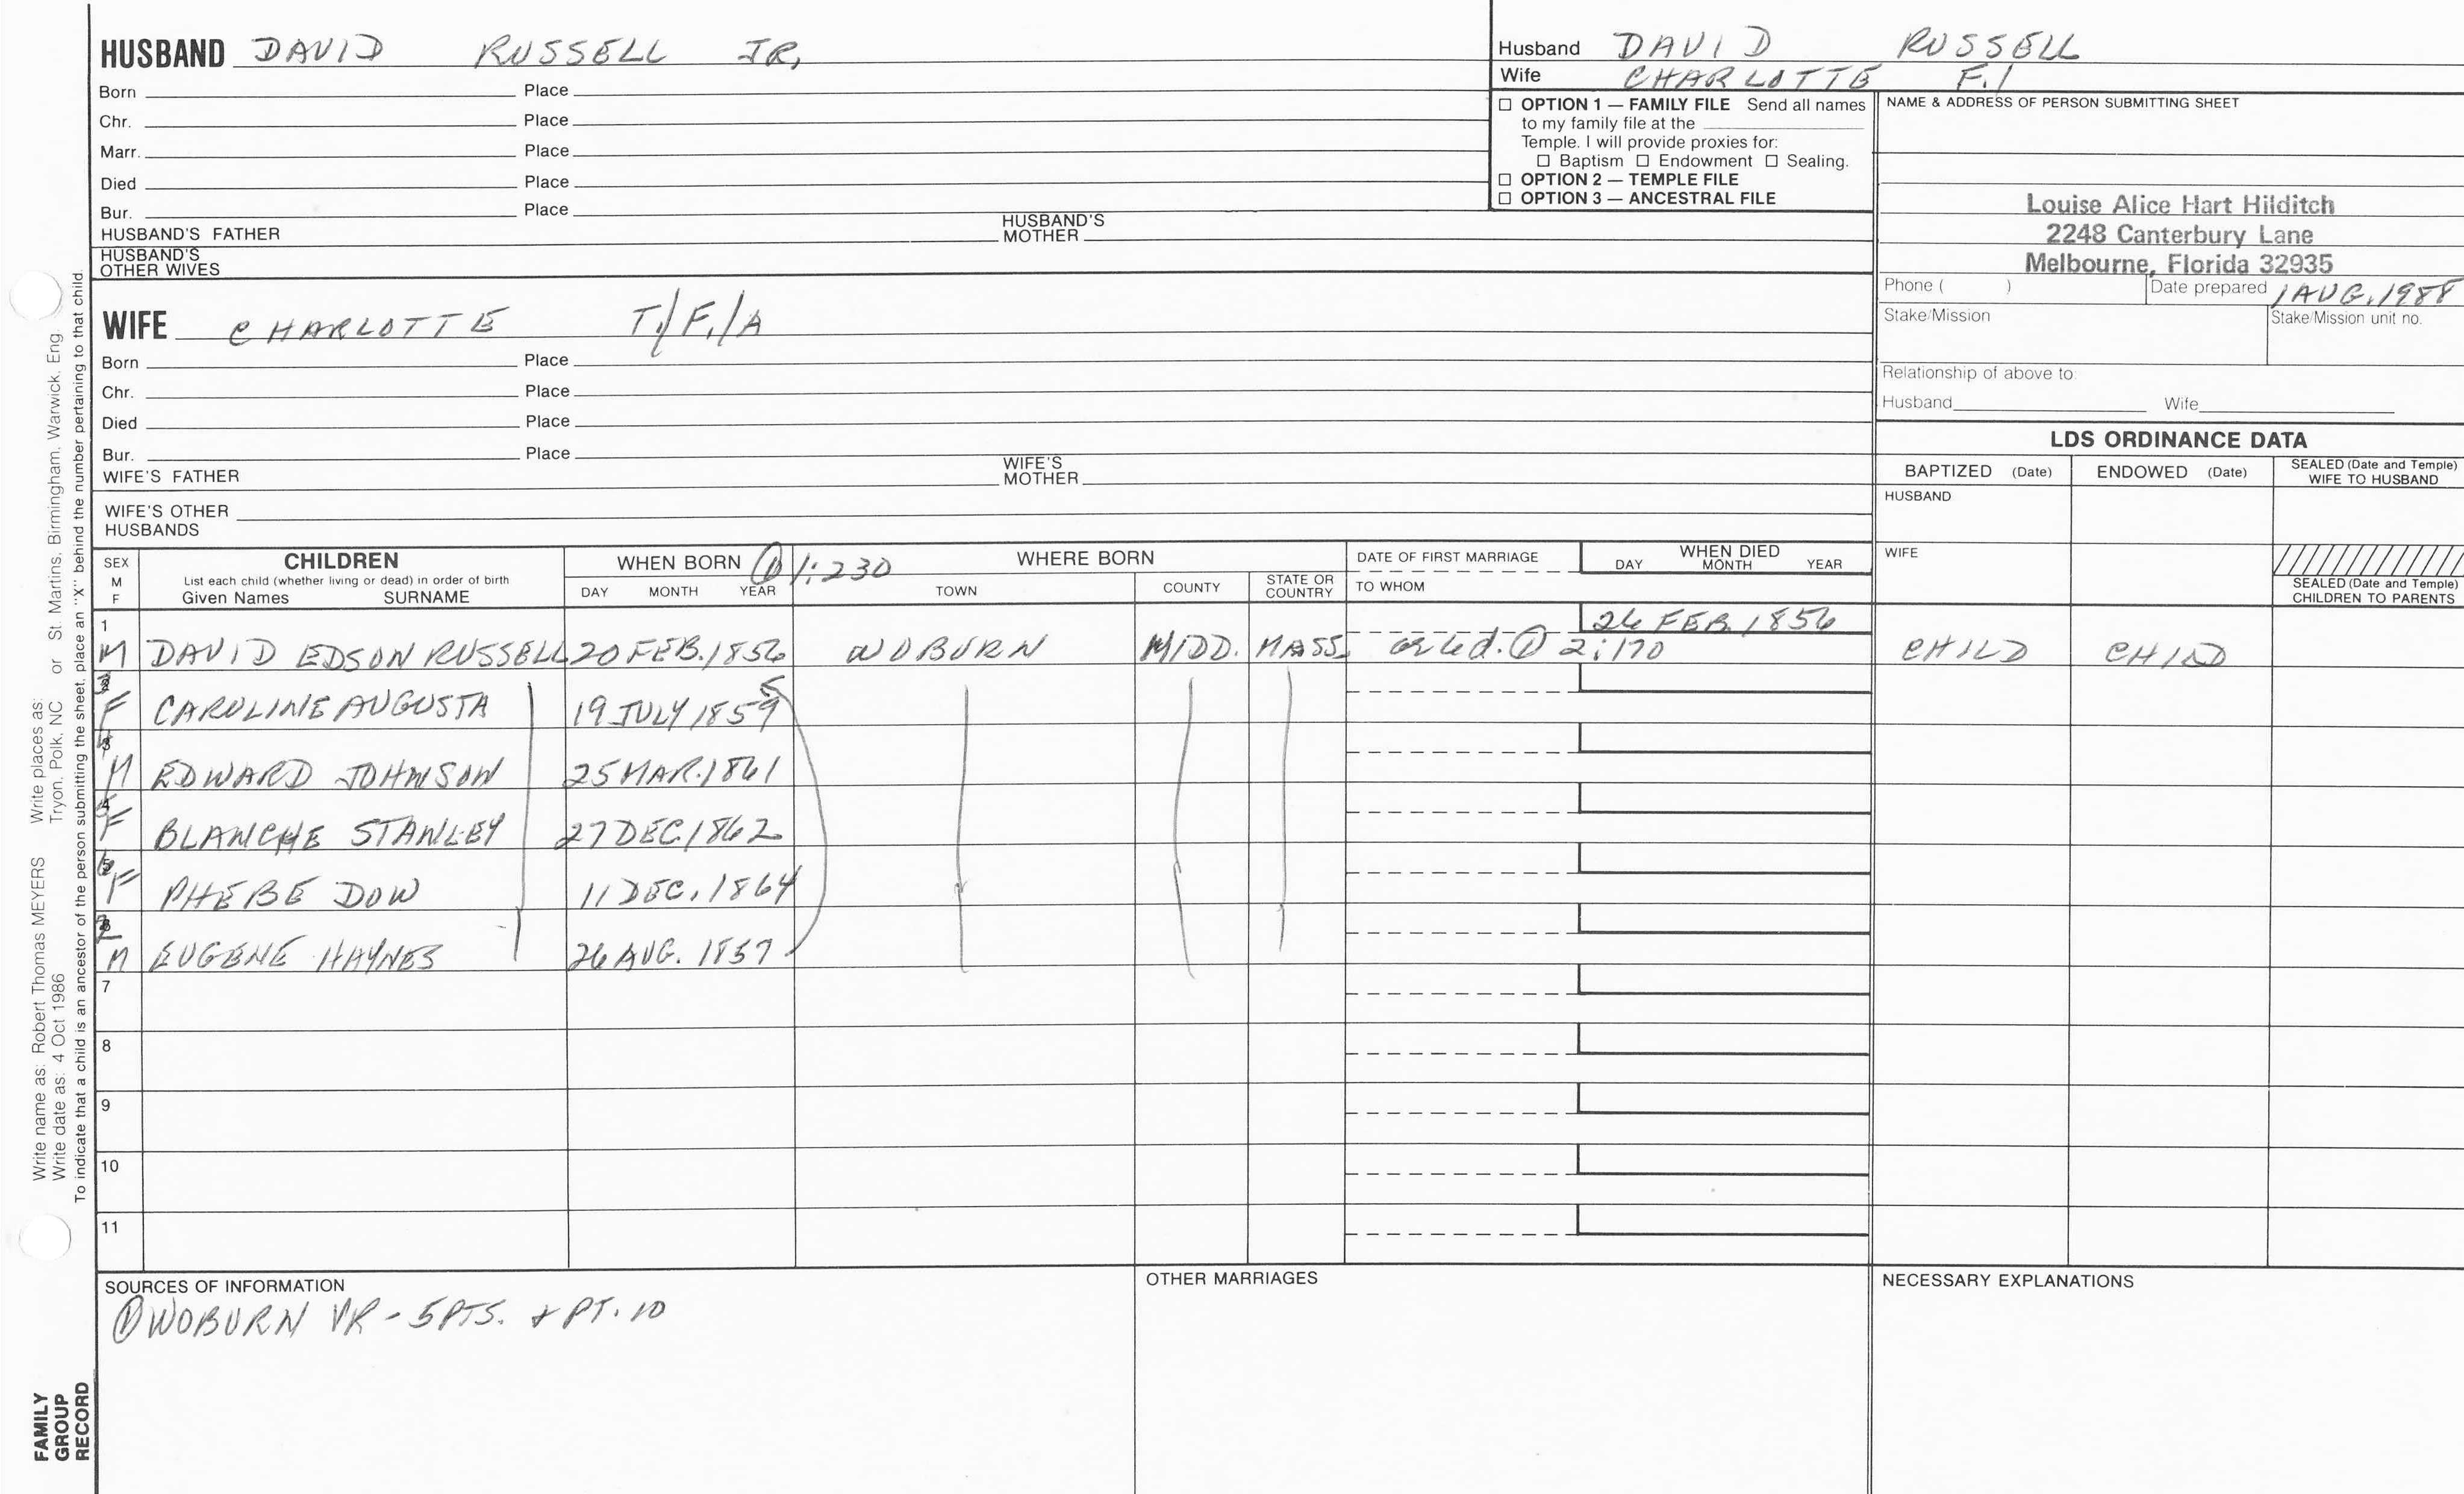 HUSBAND DAVID RUSSELL JR,
Born Place
Chr. Place
Marr. Place
Died Place
Bur. Place
HUSBAND'S FATHER HUSBAND'S MOTHER
HUSBAND'S OTHER WIVES
Husband DAVID RUSSELL
Wife CHARLOTTE F./
☐ OPTION 1 — FAMILY FILE Send all names
to my family file at the
Temple. I will provide proxies for:
☐ Baptism ☐ Endowment ☐ Sealing.
☐ OPTION 2 — TEMPLE FILE
☐ OPTION 3 — ANCESTRAL FILE
NAME & ADDRESS OF PERSON SUBMITTING SHEET
Louise Alice Hart Hilditch
2248 Canterbury Lane
Melbourne, Florida 32935
Phone ( ) Date prepared 1 AUG. 1988
Stake/Mission Stake/Mission unit no.
Relationship of above to:
Husband Wife
WIFE CHARLOTTE T./F./A
Born Place
Chr. Place
Died Place
Bur. Place
WIFE'S FATHER WIFE'S MOTHER
WIFE'S OTHER HUSBANDS
LDS ORDINANCE DATA
BAPTIZED (Date) ENDOWED (Date) SEALED (Date and Temple) WIFE TO HUSBAND
HUSBAND
WIFE
SEALED (Date and Temple) CHILDREN TO PARENTS
SEX M F
CHILDREN
List each child (whether living or dead) in order of birth
Given Names SURNAME
WHEN BORN ① 1:230
DAY MONTH YEAR
WHERE BORN
TOWN COUNTY STATE OR COUNTRY
DATE OF FIRST MARRIAGE
TO WHOM
WHEN DIED
DAY MONTH YEAR
1 26 FEB. 1856
M DAVID EDSON RUSSELL 20 FEB. 1856 WOBURN MIDD. MASS. ① 2:170 CHILD CHILD
F CAROLINE AUGUSTA 19 JULY 1859 5
M EDWARD JOHNSON 25 MAR. 1861
F BLANCHE STANLEY 27 DEC. 1862
F PHEBE DOW 11 DEC. 1864
M EUGENE HAYNES 26 AUG. 1857
7
8
9
10
11
SOURCES OF INFORMATION
① WOBURN VR - 5 PTS. + PT. 10
OTHER MARRIAGES
NECESSARY EXPLANATIONS
Write name as: Robert Thomas MEYERS Write places as:
Write date as: 4 Oct 1986 Tryon, Polk, NC or St. Martins, Birmingham, Warwick, Eng.
To indicate that a child is an ancestor of the person submitting the sheet, place an "X" behind the number pertaining to that child.
FAMILY
GROUP
RECORD